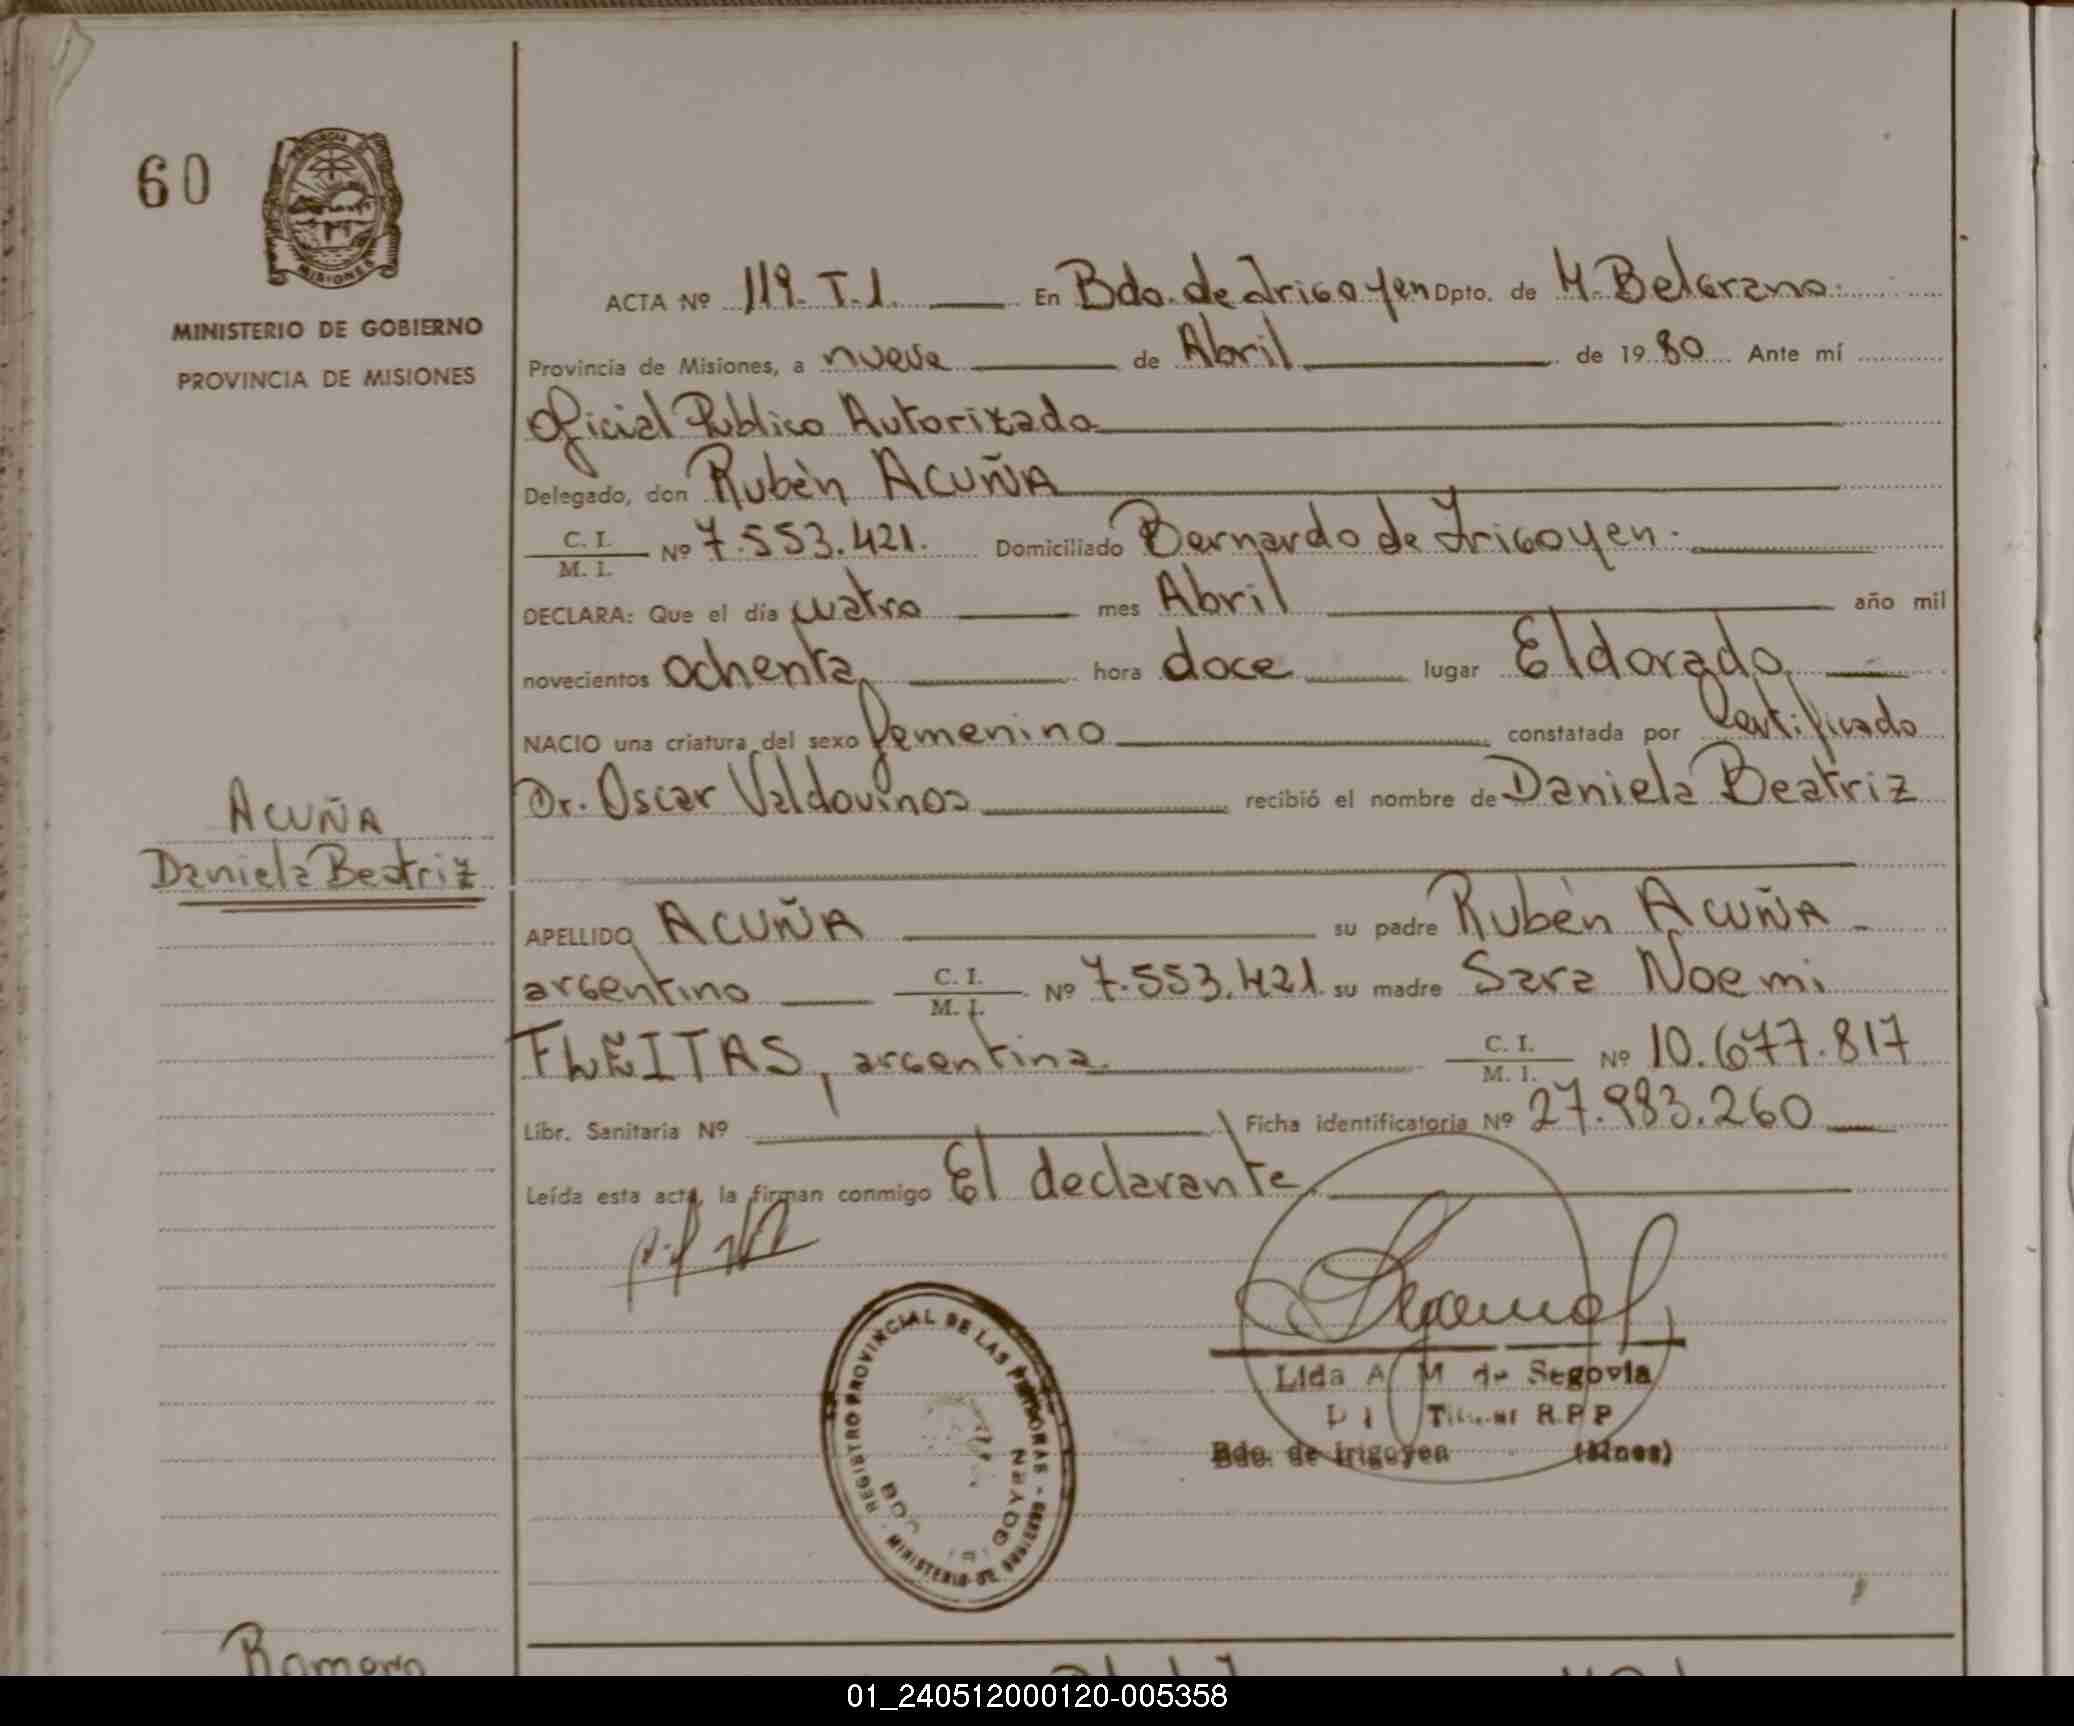 60
PROVINCIA
MISIONES
MINISTERIO DE GOBIERNO
PROVINCIA DE MISIONES
ACUÑA
Daniela Beatriz
ACTA Nº 119. T.1. En Bdo. de Irigoyen Dpto. de M. Belgrano.
Provincia de Misiones, a nueve de Abril de 19 80 Ante mí
Oficial Publico Autorizado
Delegado, don Rubén ACUÑA
C. I.
M. I. Nº 7.553.421. Domiciliado Bernardo de Irigoyen.
DECLARA: Que el día cuatro mes Abril año mil
novecientos ochenta, hora doce lugar Eldorado
NACIO una criatura del sexo femenino constatada por Certificado
Dr. Oscar Valdovinos recibió el nombre de Daniela Beatriz
APELLIDO ACUÑA su padre Rubén ACUÑA
argentino C. I.
M. I. Nº 7.553.421. su madre Sara Noemi
FLEITAS, argentina C. I.
M. I. Nº 10.677.817
Libr. Sanitaria Nº Ficha identificatoria Nº 27.983.260
Leída esta acta, la firman conmigo El declarante.
REGISTRO PROVINCIAL DE LAS PERSONAS - MINISTERIO DE GOBIERNO
Lida A M de Segovia
Titular R.P.P
Bdo. de Irigoyen (Mnes)
Romero
01_240512000120-005358